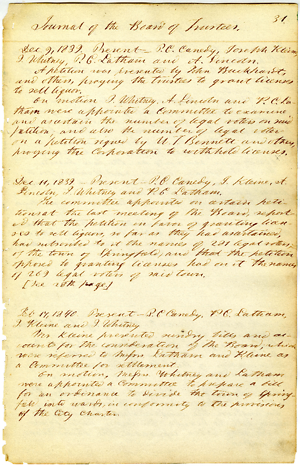 31
Journal of the Board of Trustees.
Dec. 9, 1839. Present P.C. Canedy, Joseph Klein,
J. Whitney, P.C. Latham and A. Lincoln.
A petition was presented by John Buckhardt,
and others, praying the Trustees to grant licenses
to sell liquor.
On motion J. Whitney, A. Lincoln and P.C. La-
tham were appointed a Committee to examine
and ascertain the number of legal voters on said
petition, and also the number of legal voters
on a petition signed by W. Bennett and others,
praying the Corporation to withhold licenses.
Dec. 11, 1839. Present P.C. Canedy, J. Klein, A.
Lincoln, J. Whitney and P.C. Latham.
The committee appointed on certain peti-
tions at the last meeting of the Board, report-
ed that the petition in favor of granting licen-
ses to sell liquors so far as they had ascertained,
had subscribed to it the names of legal voters
of the town of Springfield, and that the petition
opposed to granting licenses had on it the names
of 269 legal voters of said town.
[See page]
1840. Present P.C. Canedy, P.C. Latham,
J. Kleine and J. Whitney.
Mr. Kleine presented sundry bills and ac-
counts for the consideration of the Board, which
were referred to Messrs Latham and Kleine as
a Committee for settlement.
On motion, Messrs Whitney and Latham
were appointed a Committee to prepare a bill
for an ordinance to divide the town of Spring-
field into wards, in conformity to the provisions
of the City Charter.